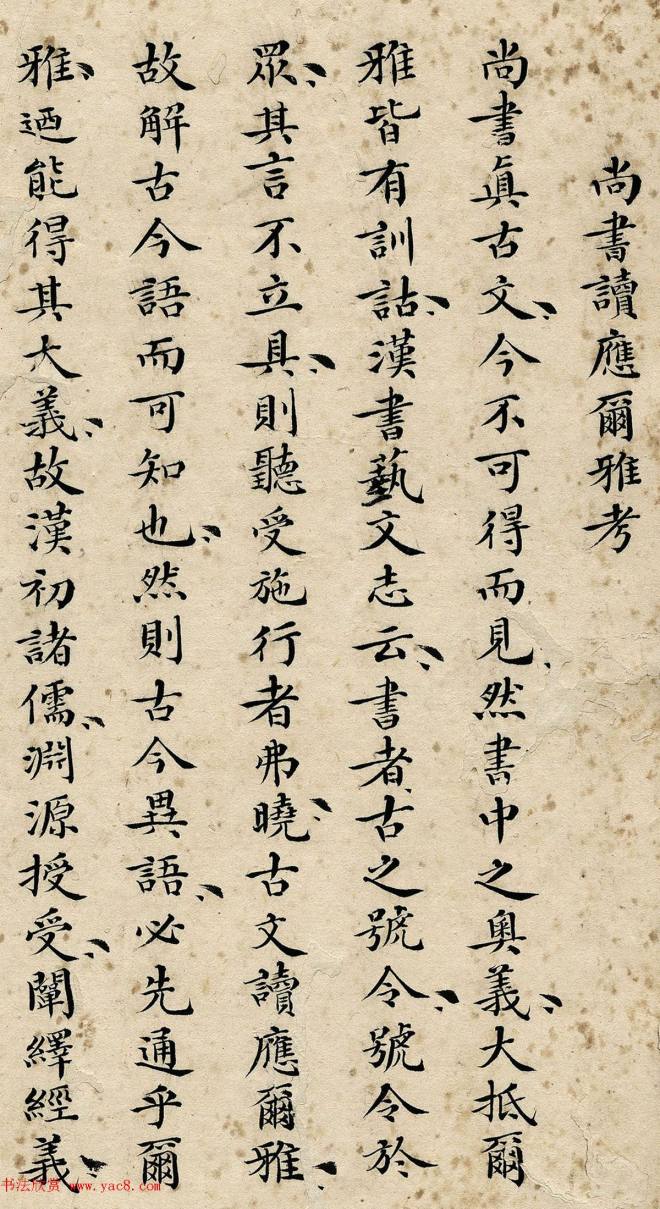 尚書讀應爾雅考
尚書真古文、今不可得而見、然書中之奧義、大抵爾
雅皆有訓詁、漢書藝文志云、書者、古之號令、號令於
眾、其言不立具、則聽受施行者弗曉、古文讀應爾雅、
故解古今語而可知也、然則古今異語、必先通乎爾
雅、迺能得其大義、故漢初諸儒、淵源授受、闡繹經義、
书法欣赏 www.yac8.com